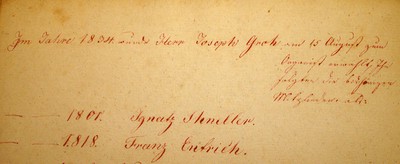 Im Jahre 1834 wurde Herr Joseph Groh am 15 August zum
Organist erwählt. Ihr
folgten die
Mitglieder als:
— — 1801. Ignatz Shmeller.
— — 1818. Franz Entrich.